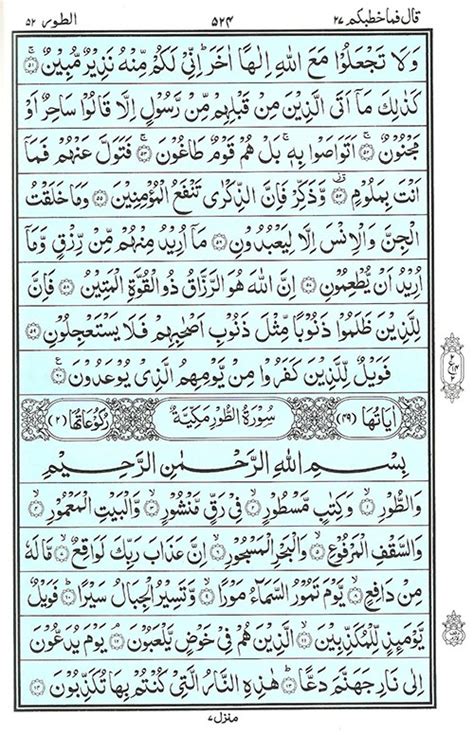 قال فما خطبكم ٢٧ ٥٢٤ الطور ٥٢
وَلَا تَجْعَلُوْا مَعَ اللّٰهِ اِلٰهًا اٰخَرَ ؕ اِنِّىْ لَكُمْ مِّنْهُ نَذِيْرٌ مُّبِيْنٌ ۝٥١
كَذٰلِكَ مَاۤ اَتَى الَّذِيْنَ مِنْ قَبْلِهِمْ مِّنْ رَّسُوْلٍ اِلَّا قَالُوْا سَاحِرٌ اَوْ
مَجْنُوْنٌ ۝٥٢ اَتَوَاصَوْا بِهٖ ۚ بَلْ هُمْ قَوْمٌ طَاغُوْنَ ۝٥٣ فَتَوَلَّ عَنْهُمْ فَمَاۤ
اَنْتَ بِمَلُوْمٍ ۝٥٤ وَّذَكِّرْ فَاِنَّ الذِّكْرٰى تَنْفَعُ الْمُؤْمِنِيْنَ ۝٥٥ وَمَا خَلَقْتُ
الْجِنَّ وَالْاِنْسَ اِلَّا لِيَعْبُدُوْنِ ۝٥٦ مَاۤ اُرِيْدُ مِنْهُمْ مِّنْ رِّزْقٍ وَّمَاۤ
اُرِيْدُ اَنْ يُّطْعِمُوْنِ ۝٥٧ اِنَّ اللّٰهَ هُوَ الرَّزَّاقُ ذُو الْقُوَّةِ الْمَتِيْنُ ۝٥٨ فَاِنَّ
لِلَّذِيْنَ ظَلَمُوْا ذَنُوْبًا مِّثْلَ ذَنُوْبِ اَصْحٰبِهِمْ فَلَا يَسْتَعْجِلُوْنِ ۝٥٩
فَوَيْلٌ لِّلَّذِيْنَ كَفَرُوْا مِنْ يَّوْمِهِمُ الَّذِىْ يُوْعَدُوْنَ ۝٦٠
اٰيَاتُهَا (٤٩) سُوْرَةُ الطُّوْرِ مَكِّيَّةٌ رُكُوْعَاتُهَا (٢)
بِسْمِ اللّٰهِ الرَّحْمٰنِ الرَّحِيْمِ
وَالطُّوْرِ ۝١ وَكِتٰبٍ مَّسْطُوْرٍ ۝٢ فِىْ رَقٍّ مَّنْشُوْرٍ ۝٣ وَّالْبَيْتِ الْمَعْمُوْرِ ۝٤
وَالسَّقْفِ الْمَرْفُوْعِ ۝٥ وَالْبَحْرِ الْمَسْجُوْرِ ۝٦ اِنَّ عَذَابَ رَبِّكَ لَوَاقِعٌ ۝٧ مَّا لَهٗ
مِنْ دَافِعٍ ۝٨ يَّوْمَ تَمُوْرُ السَّمَآءُ مَوْرًا ۝٩ وَّتَسِيْرُ الْجِبَالُ سَيْرًا ۝١٠ فَوَيْلٌ
يَّوْمَئِذٍ لِّلْمُكَذِّبِيْنَ ۝١١ الَّذِيْنَ هُمْ فِىْ خَوْضٍ يَّلْعَبُوْنَ ۝١٢ يَوْمَ يُدَعُّوْنَ
اِلٰى نَارِ جَهَنَّمَ دَعًّا ۝١٣ هٰذِهِ النَّارُ الَّتِىْ كُنْتُمْ بِهَا تُكَذِّبُوْنَ ۝١٤
منزل ٧